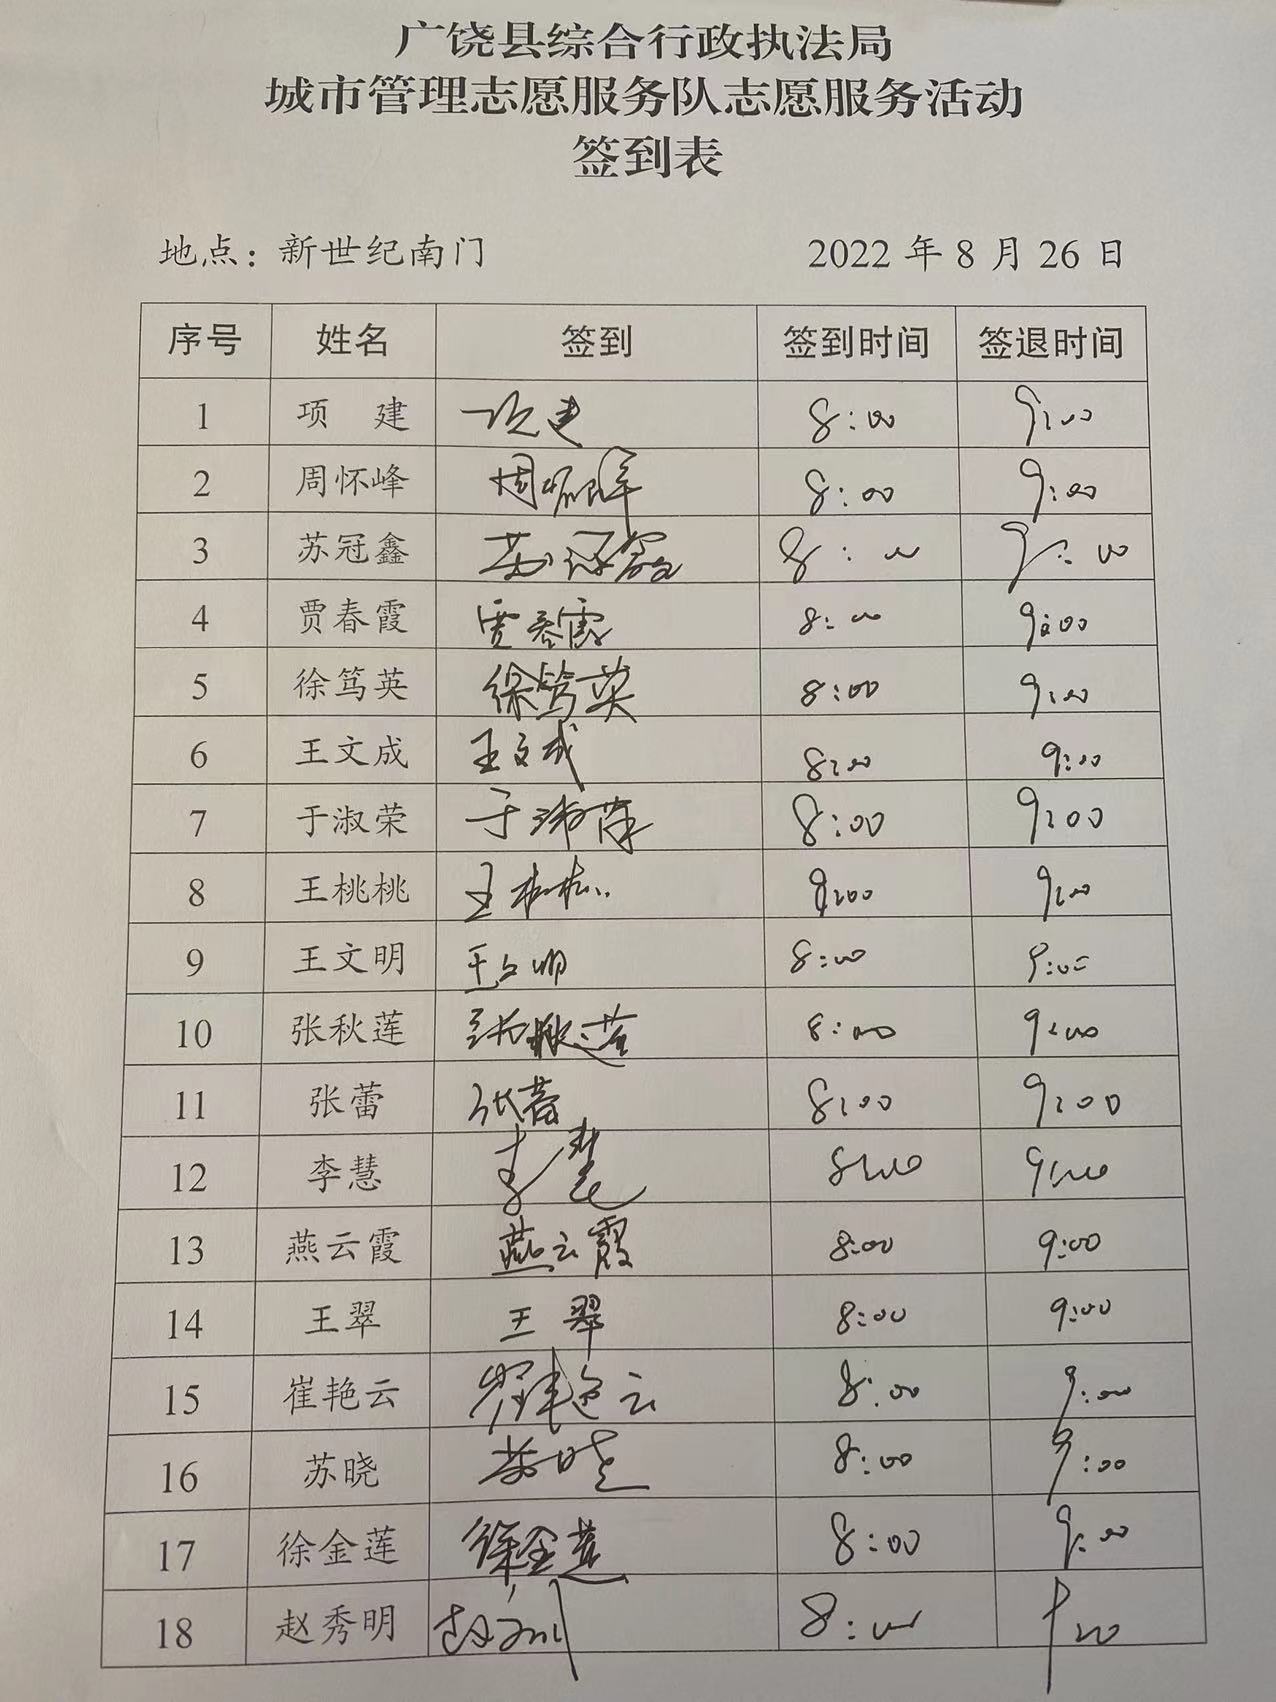 广饶县综合行政执法局
城市管理志愿服务队志愿服务活动
签到表
地点：新世纪南门 2022年8月26日
序号 姓名 签到 签到时间 签退时间
1 项 建 项建 8:00 9:00
2 周怀峰 周怀峰 8:00 9:00
3 苏冠鑫 苏冠鑫 8:00 9:00
4 贾春霞 贾春霞 8:00 9:00
5 徐笃英 徐笃英 8:00 9:00
6 王文成 王文成 8:00 9:00
7 于淑荣 于淑荣 8:00 9:00
8 王桃桃 王桃桃 8:00 9:00
9 王文明 王文明 8:00 9:00
10 张秋莲 张秋莲 8:00 9:00
11 张蕾 张蕾 8:00 9:00
12 李慧 李慧 8:00 9:00
13 燕云霞 燕云霞 8:00 9:00
14 王翠 王翠 8:00 9:00
15 崔艳云 崔艳云 8:00 9:00
16 苏晓 苏晓 8:00 9:00
17 徐金莲 徐金莲 8:00 9:00
18 赵秀明 赵秀明 8:00 9:00